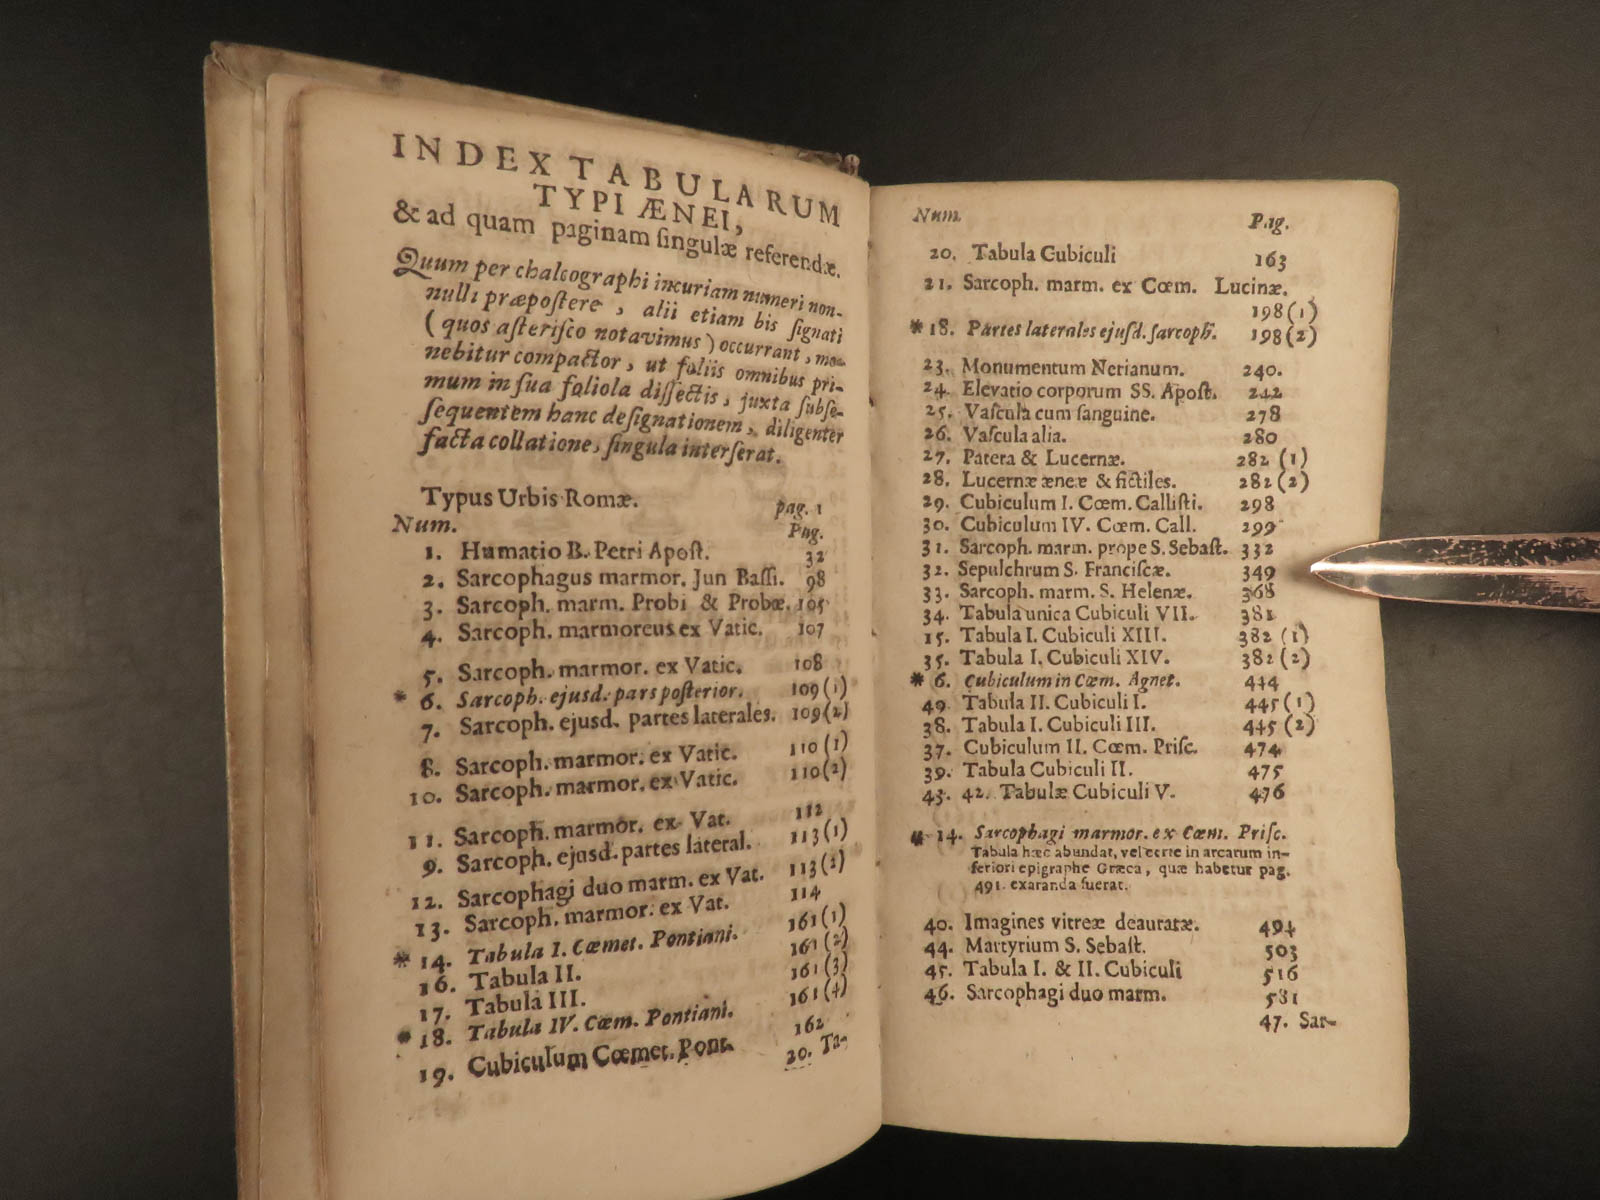 INDEX TABULARUM
TYPI ÆNEI,
& ad quam paginam ſingulæ referendæ.
Quum per chalcographi incuriam numeri non-
nulli præpoſtere, alii etiam bis ſignati
(quos aſteriſco notavimus) occurrant, mo-
nebitur compactor, ut foliis omnibus pri-
mum in ſua foliola diſſectis, juxta ſubſe-
ſequentem hanc deſignationem, diligenter
facta collatione, ſingula interſerat.
Typus Urbis Romæ. pag. 1
Num. Pag.
1. Humatio B. Petri Apoſt. 32
2. Sarcophagus marmor. Jun Baſſi. 98
3. Sarcoph. marm. Probi & Probæ. 105
4. Sarcoph. marmoreus ex Vatic. 107
5. Sarcoph. marmor. ex Vatic. 108
* 6. Sarcoph. ejusd. pars poſterior. 109 (1)
7. Sarcoph. ejusd. partes laterales. 109 (2)
8. Sarcoph. marmor. ex Vatic. 110 (1)
10. Sarcoph. marmor. ex Vatic. 110 (2)
11. Sarcoph. marmor. ex Vat. 112
9. Sarcoph. ejusd. partes lateral. 113 (1)
12. Sarcophagi duo marm. ex Vat. 113 (2)
13. Sarcoph. marmor. ex Vat. 114
* 14. Tabula I. Cœmet. Pontiani. 161 (1)
16. Tabula II. 161 (2)
17. Tabula III. 161 (3)
* 18. Tabula IV. Cœm. Pontiani. 161 (4)
19. Cubiculum Cœmet. Pont. 162
20. Ta-
Num. Pag.
20. Tabula Cubiculi 163
21. Sarcoph. marm. ex Cœm. Lucinæ.
198 (1)
* 18. Partes laterales ejusd. sarcoph. 198 (2)
23. Monumentum Nerianum. 240.
24. Elevatio corporum SS. Apoſt. 242
25. Vaſcula cum ſanguine. 278
26. Vaſcula alia. 280
27. Patera & Lucernæ. 282 (1)
28. Lucernæ æneæ & fictiles. 282 (2)
29. Cubiculum I. Cœm. Calliſti. 298
30. Cubiculum IV. Cœm. Call. 299
31. Sarcoph. marm. prope S. Sebaſt. 332
32. Sepulchrum S. Franciſcæ. 349
33. Sarcoph. marm. S. Helenæ. 368
34. Tabula unica Cubiculi VII. 381
15. Tabula I. Cubiculi XIII. 382 (1)
35. Tabula I. Cubiculi XIV. 382 (2)
* 6. Cubiculum in Cœm. Agnet. 444
49. Tabula II. Cubiculi I. 445 (1)
38. Tabula I. Cubiculi III. 445 (2)
37. Cubiculum II. Cœm. Priſc. 474
39. Tabula Cubiculi II. 475
43. 42. Tabulæ Cubiculi V. 476
* 14. Sarcophagi marmor. ex Cœm. Priſc.
Tabula hæc abundat, vel certe in arcarum in-
feriori epigraphe Græca, quæ habetur pag.
491. exaranda fuerat.
40. Imagines vitreæ deauratæ. 494
44. Martyrium S. Sebaſt. 503
45. Tabula I. & II. Cubiculi 516
46. Sarcophagi duo marm. 581
47. Sar-